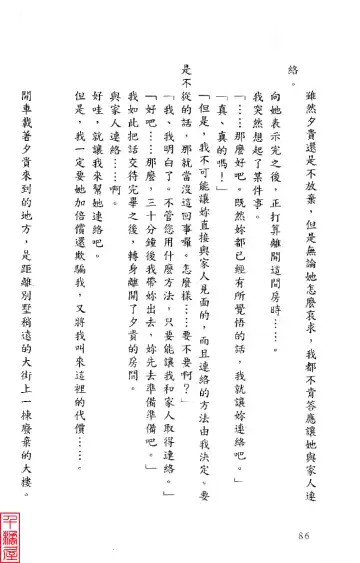 雖然夕貴還是不放棄，但是無論她怎麼哀求，我都不肯答應讓她與家人連
絡。
向她表示完之後，正打算離開這間房時……。
我突然想起了某件事。
「……那麼好吧。既然妳都已經有所覺悟的話，我就讓妳連絡吧。」
「真、真的嗎！」
「但是，我不可能讓妳直接與家人見面的，而且連絡的方法由我決定。要
是不從的話，那就當沒這回事囉。怎麼樣……要不要啊？」
「我、我明白了。不管您用什麼方法，只要能讓我和家人取得連絡。」
「好吧……那麼，三十分鐘後我帶妳出去，妳先去準備準備吧。」
我如此把話交待完畢之後，轉身離開了夕貴的房間。
與家人連絡……啊。
好哇，就讓我來幫她連絡吧。
但是，我一定要她加倍償還欺騙我，又將我叫來這裡的代價……。
開車載著夕貴來到的地方，是距離別墅稍遠的大街上一棟廢棄的大樓。
86
千濤屋